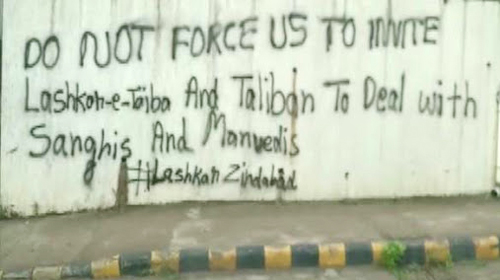 DO NOT FORCE US TO INVITE
Lashkar-e-Toiba And Taliban To Deal with
Sanghis And Manvedis
#Lashkar Zindabad